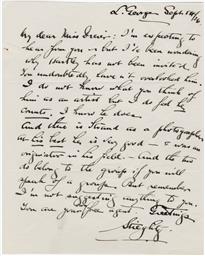 L. George Sept 14/16
My dear Miss Dreier: I'm expecting to
hear from you - but I've been wondering
why Hartley has not been invited.
You undoubtedly haven't overlooked him.
I do not know what you think of
him as an artist but I do feel he
counts. I know he does.
And there is Strand as a photographer
at his best he is very good - & was an
originator in his field - And the two
do belong to the group if you will
speak of a group. But remember
I'm not suggesting anything to you.
You are your own agent. Greetings
Stieglitz